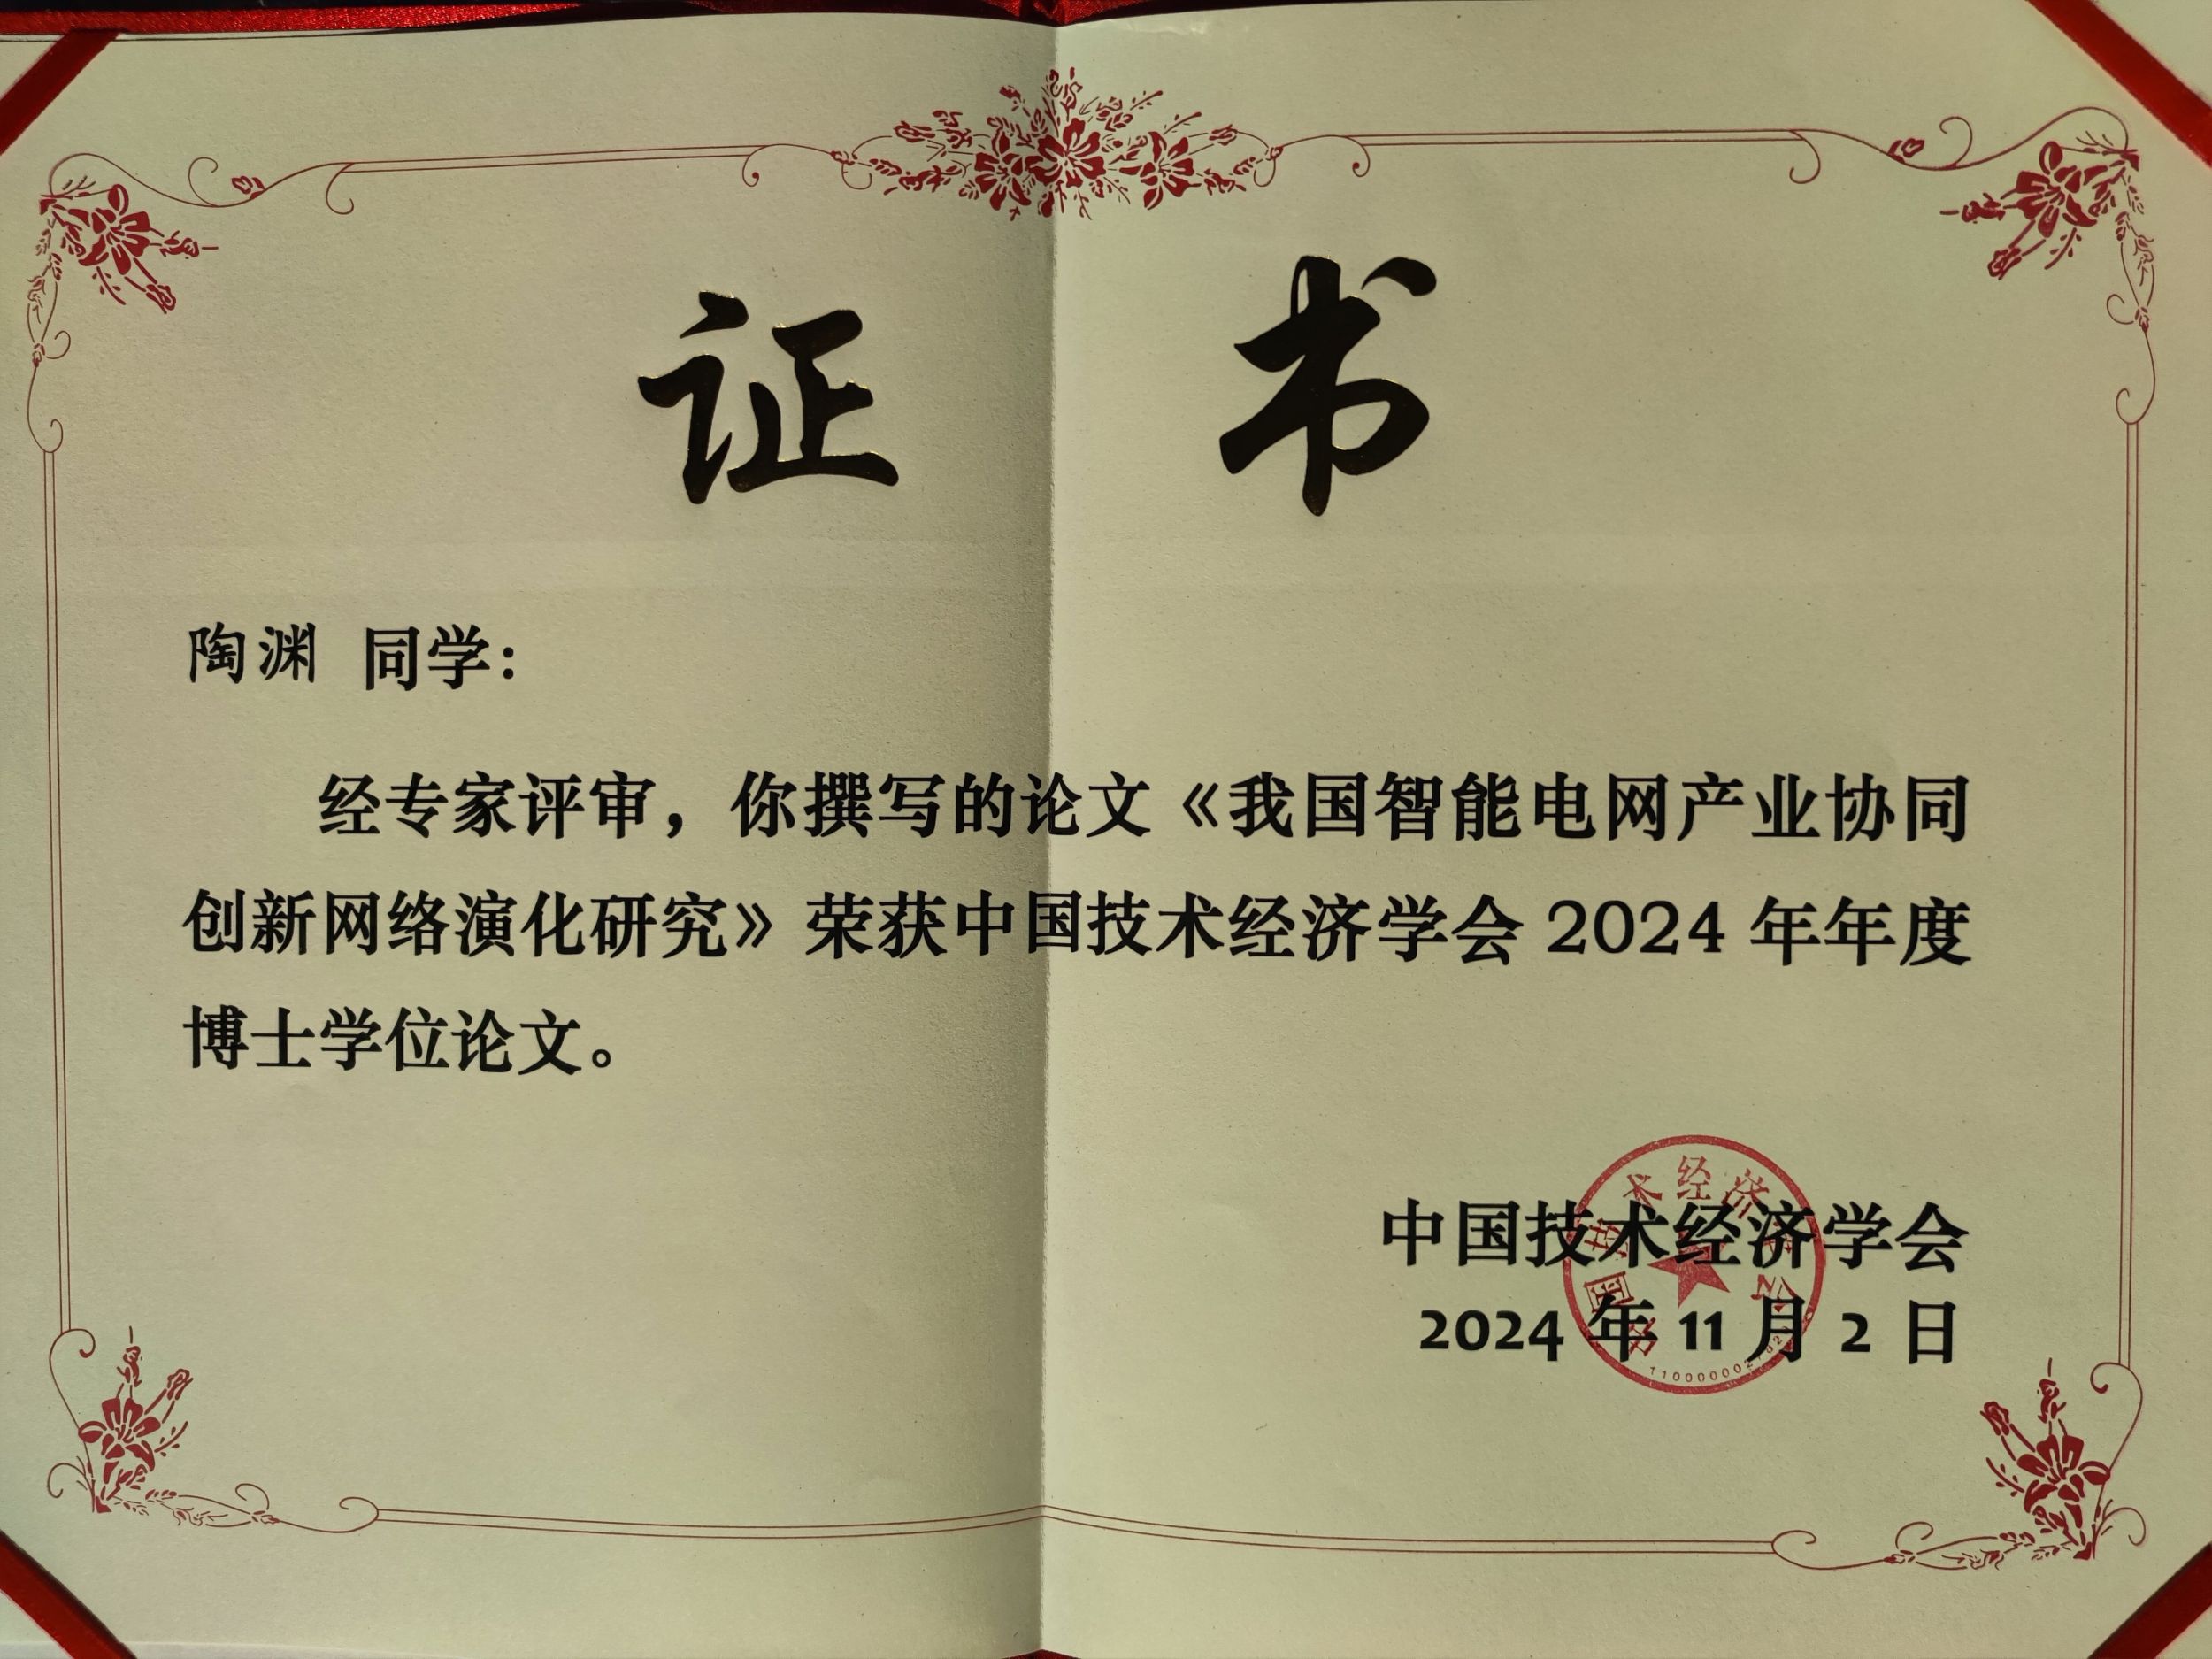 证 书
陶渊 同学：
经专家评审，你撰写的论文《我国智能电网产业协同
创新网络演化研究》荣获中国技术经济学会 2024 年年度
博士学位论文。
中国技术经济学会
2024 年 11 月 2 日
中国技术经济学会